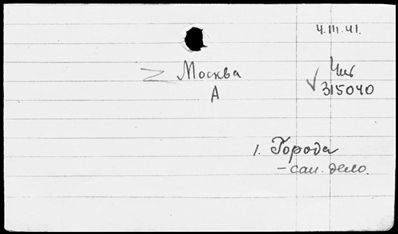 4.III.41.
Москва
А
Чит
√ 315040
1. Города
– сан. дело.